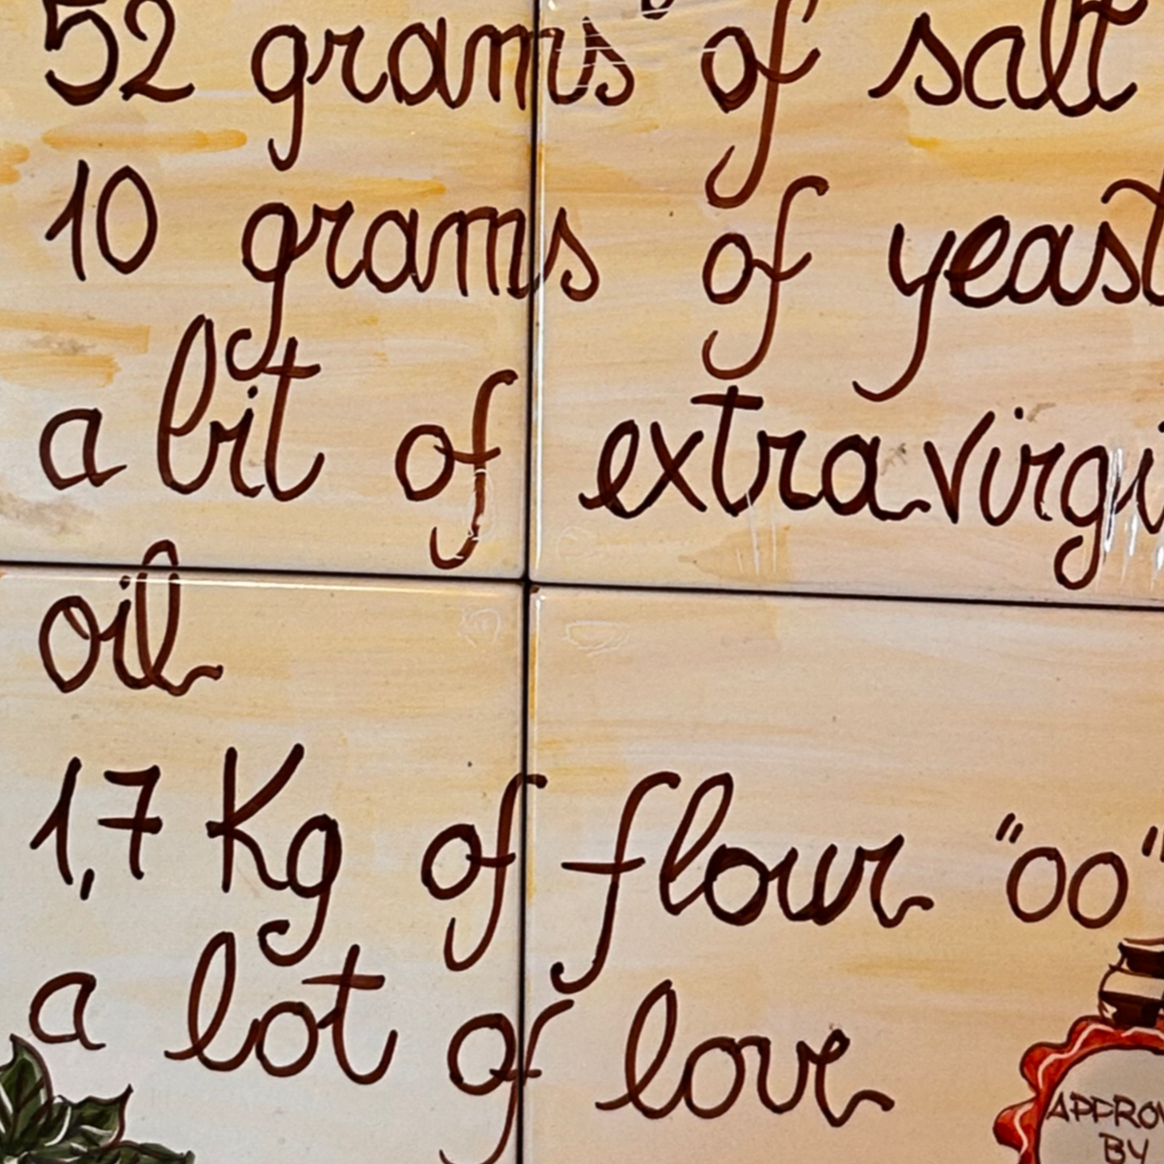 52 grams of salt
10 grams of yeast
a bit of extravirgi
oil
1,7 Kg of flour "00"
a lot of love
APPROV
BY